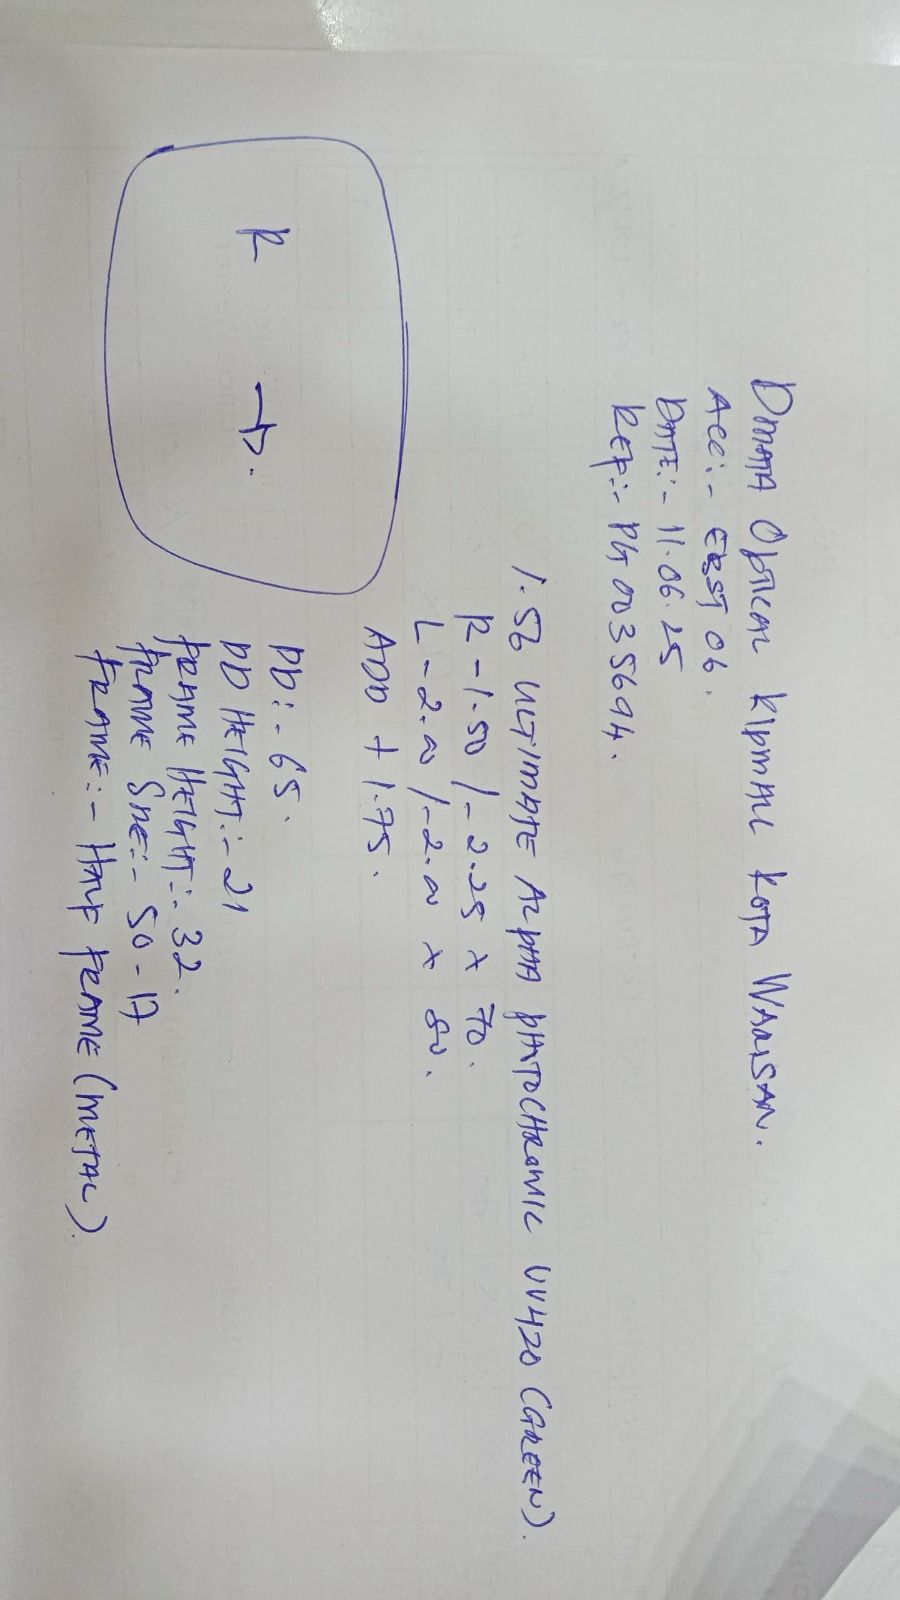 DMATA OPTICAL KLPMALL KOTA WARISAN.
ACC:- EAST 06.
DATE:- 11.06.25
REF:- PG 0035694.
1.56 ULTIMATE ALPHA PHOTOCHROMIC UV420 (GREEN).
R -1.50 / -2.25 x 70.
L -2.00 / -2.00 x 80.
ADD + 1.75.
PD:- 65.
PD HEIGHT:- 21
FRAME HEIGHT:- 32.
FRAME SIZE:- 50-17
FRAME:- HALF FRAME (METAL).
R